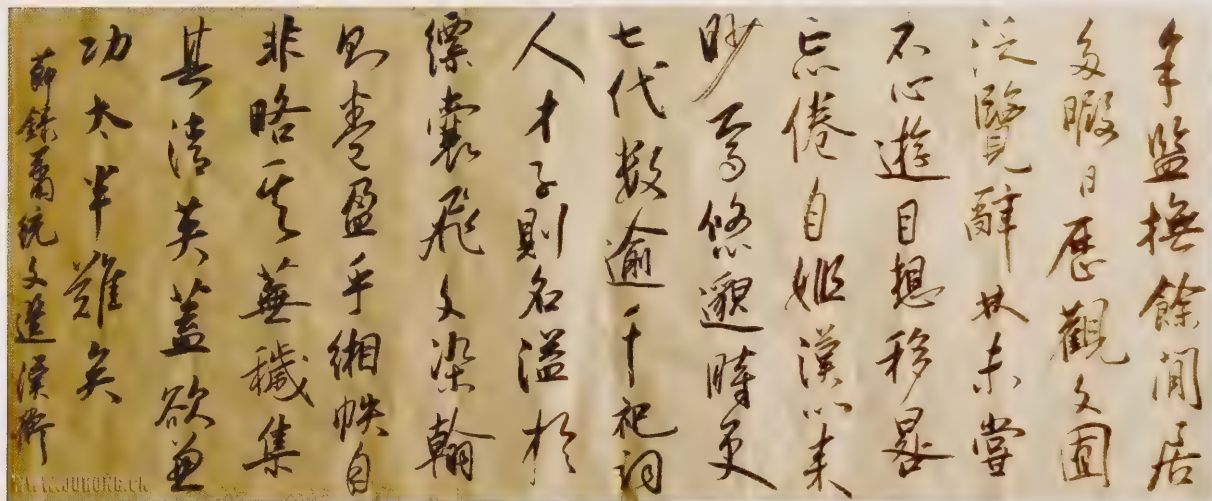 余監撫餘閒居
多暇日歷觀文囿
泛覽辭林未嘗
不心遊目想移晷
忘倦自姬漢以来
眇焉悠邈時更
七代数逾千祀詞
人才子則名溢於
縹囊飛文染翰
則卷盈乎緗帙自
非略其蕪穢集
其清英蓋欲兼
功太半難矣
節錄蕭統文選